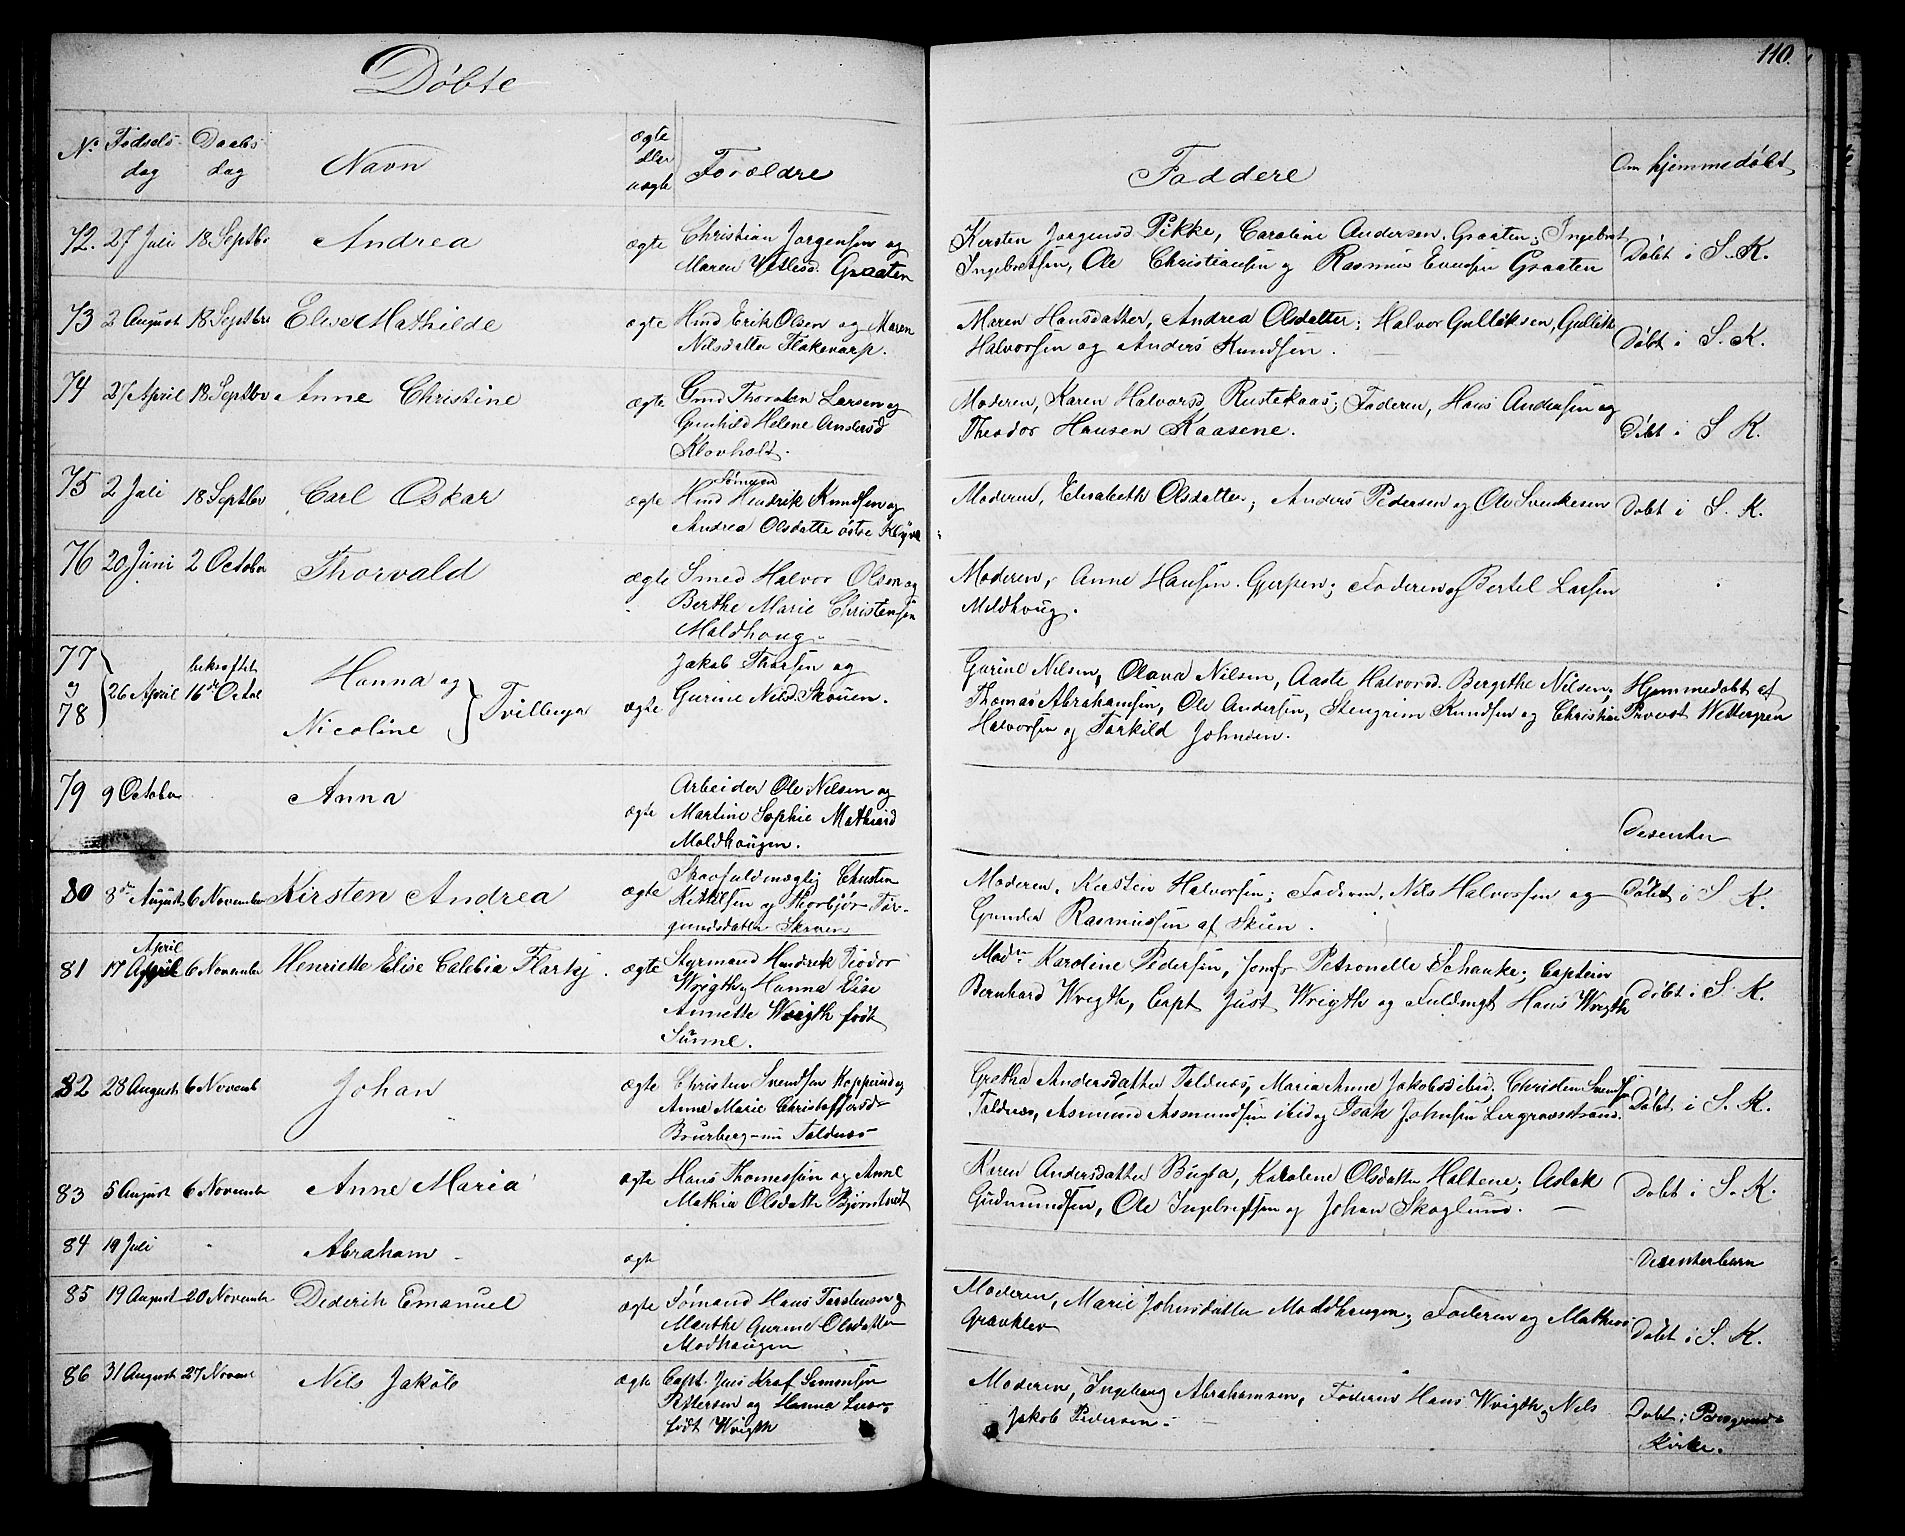 110.
Döbte
No Födsels- dag Daabs- dag Navn ægte eller uægte Forældre Faddere Om hjemmedöbt
72. 27 Juli 18 Septbr Andrea ægte Christian Jorgensen og
Maren Graaten
Kersten Jorgensd Pikke, Caroline Andersen Graaten; Ingebret
Ingebretsen, Ole Christiansen og Rasmus Evensen Graaten
Döbt i S. K.
73 2 August 18 Septbre Elise Mathilde ægte Hmd Erik Olsen og Maren
Nilsdatter Flakevarp.
Maren Hansdatter, Andrea Olsdatter; Halvor Gulliksen, Gullik
Halvorsen og Anders Knudsen.
Döbt i S. K.
74 27 April 18 Septbr Anne Christine ægte Larsen og
Gunhild Helene Andersd
Klovholt.
Moderen, Karen Halvorsd Rustekaas; Faderen, Hans Andersen og
Theodor Hansen Kaasene.
Döbt i S. K.
75 2 Juli 18 Septbr Carl Oskar ægte Sömand
Hmd Hendrik Knudsen og
Andrea Olsdatte östre Klöve
Moderen, Elisabeth Olsdatter; Anders Pedersen og Ole Svenkesen
Döbt i S. K.
76 20 Juni 2 October Thorvald ægte Smed Halvor Olsen og
Berthe Marie Christensen
Moldhoug
Moderen, Anne Hansen Gjerpen; Faderen og Bertel Larsen
Moldhoug.
77 og 78 26 April bekræftet 16de Octob Hanna og
Nicoline Tvillinger ægte
Jakob Thorsen og
Gurine Nilsd. Skouen.
Gurine Nilsen, Olava Nilsen, Aaste Halvorsd. Bergithe Nilsen;
Thomas Abrahamsen, Ole Andersen, Stengrim Knudsen og Christian
Halvorsen og Torkild Johnsen.
Hjemmedobt af
Provst Wettergren
79 9 October Anna ægte Arbeider Ole Nilsen og
Martine Sophie Mathiasd
Moldhougen.
Desenter
80 8de August 6 November Kirsten Andrea ægte Christen
Kittilsen og Thorbjör Tor-
gundsdatter Skroen
Moderen, Kirsten Halvorsen; Faderen, Nils Halvorsen og
Gunder Rasmussen af Skien.
Döbt i S. K.
81 17 April 6 November Henriette Elise Calebia ægte Styrmand Hendrik Teodor
Wrigth og Hanna Elise
Annette Wrigth födt
Modrn Karoline Pedersen, Jomfr Petronelle Schanke; Captein
Bernhard Wrigth, Capt Just Wrigth og Fuldmgt Hans Wrigth
Döbt i S. K.
82 28 August 6 Novemb Johan ægte Christen Svendsen
Anne Marie Christoffersd
Brurberg Toldnæs
Grethe Andersdatter Toldnæs, Maria Anne Jakobsd ibid; Christen Svendsen
Toldnæs, Asmund Asmundsen ibid og Isak Johnsen Lergravsstrand.
Döbt i S. K.
83 5 August 6 November Anne Maria ægte Hans Thomessen og Anne
Mathia Olsdatter Björntvedt
Karen Andersdatter Bugta, Karolene Olsdatter Haltene; Aslak
Gudmundsen, Ole Ingebretsen og Johan Skoglund.
Döbt i S. K.
84 19 Juli Abraham ægte
Desenterbarn
85 19 August 20 November Diderik Emanuel ægte Sömand Hans Torstensen og
Marthe Gurine Olsdatter
Modhaugen
Moderen, Marie Johnsdatter Moldhaugen; Faderen og Mathias
Gravklev
Döbt i S. K.
86 31 August 27 Novemb Nils Jakob ægte Capt. Simonsen
Pettersen og Hanna
födt Wrigth
Moderen, Ingeborg Abrahamsen, Faderen Hans Wrigth og Nils
Jakob Pedersen.
Döbt i Porsgrunds
Kirke.